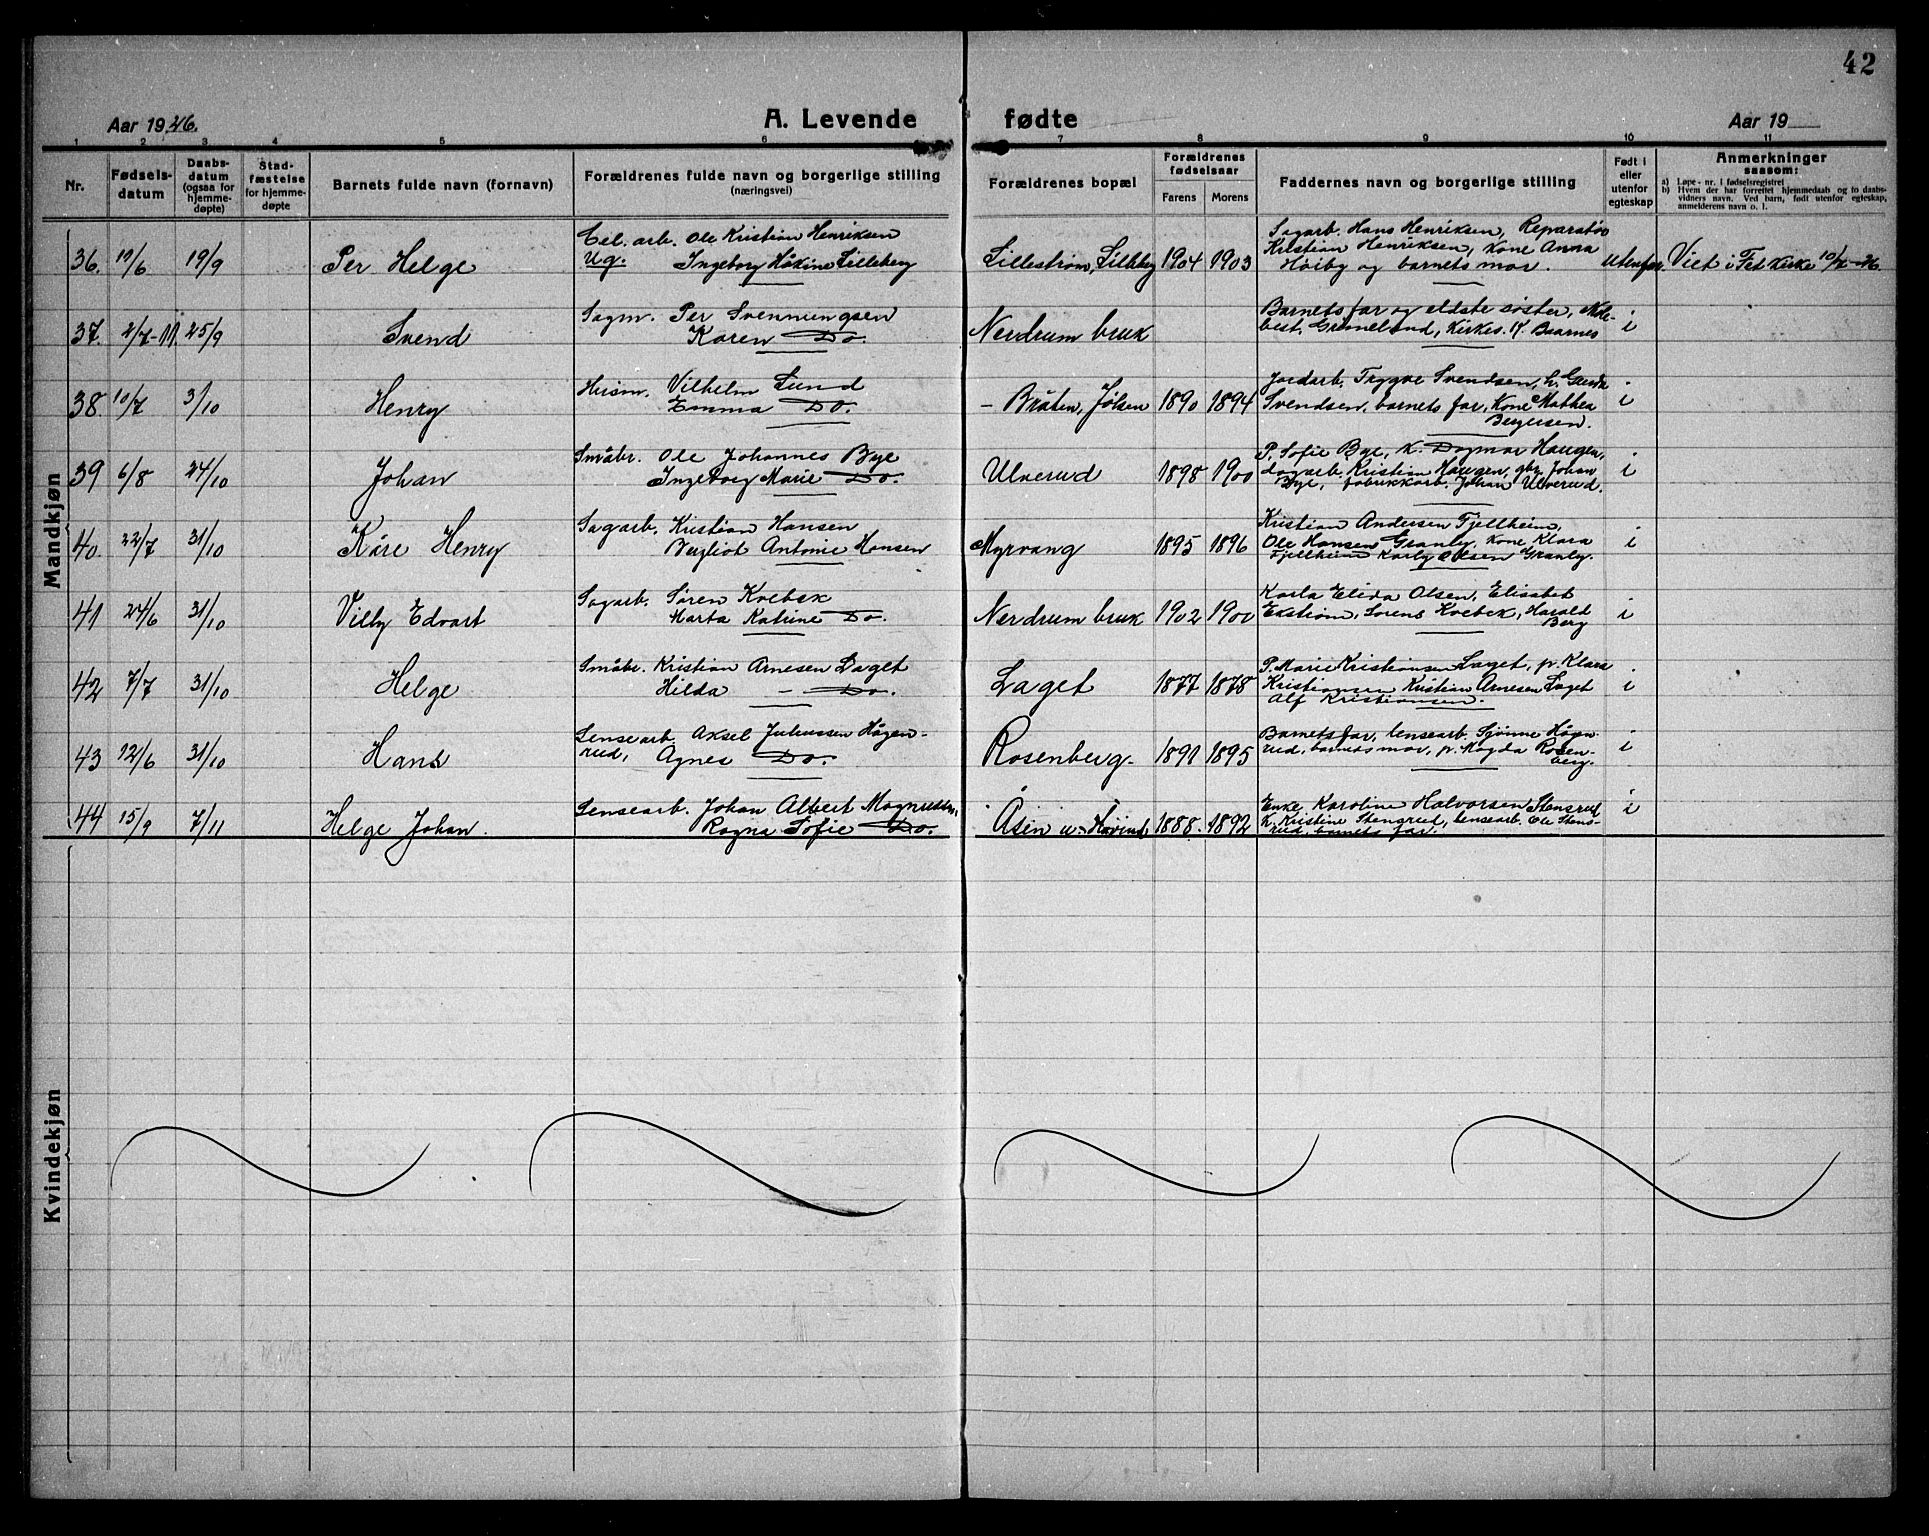 42
Aar 1926.
A. Levende fødte
Aar 19
1 2 3 4 5 6 7 8 9 10 11
Nr.
Fødsels-
datum
Daabs-
datum
(ogsaa for
hjemme-
døpte)
Stad-
fæstelse
for hjemme-
døpte
Barnets fulde navn (fornavn)
Forældrenes fulde navn og borgerlige stilling
(næringsvei)
Forældrenes bopæl
Forældrenes
fødselsaar
Farens Morens
Faddernes navn og borgerlige stilling
Født i
eller
utenfor
egteskap
Anmerkninger
saasom:
a) Løpe-nr. i fødselsregistret
b) Hvem der har forrettet hjemmedaab og to daabs-
vidners navn. Ved barn, født utenfor egteskap,
anmelderens navn o. l.
Mandkjøn
36. 19/6 19/9 Per Helge
Cel. arb. Ole Kristian Henriksen
Ug. Ingeborg Håkine Lilleberg
Lillestrøm, Lilleberg 1904 1903
Sagarb. Hans Henriksen, Reparatør
Kristian Henriksen, Kone Anna
Høiby og barnets mor.
utenfor Viet i Fet kirke 10/7-26.
37. 2/7-11. 25/9 Svend
Sagm. Per Svenningsen
Karen Do.
Nerdrum bruk
Barnets far og eldste søster,
best. Grimelund, Kirkes. K. Baarnes
i
38. 10/7 3/10 Henry
Husm. Vilhelm Lund
Emma Do.
- Bråten, Jølsen 1890 1894
Jordarb. Trygve Svendsen, h. Gunda
Svendsen, barnets far, Kone Mathea
Bergersen.
i
39 6/8 24/10 Johan
Småbr. Ole Johannes Bye
Ingeborg Marie Do.
Ulverud 1898 1900
P. Sofie Bye, K. Dagmar Haugen,
dagarb. Kristian Haugen, gbr. Johan
Bye, fabrikkarb. Johan Ulverud.
i
40. 22/7 31/10 Kåre Henry
Sagarb. Kristian Hansen
Bergliot Antonie Hansen
Myrvang 1895 1896
Kristian Andersen Fjellheim,
Ole Hansen Granby, Kone Klara
Fjellheim Karly Olsen Granby.
i
41 24/6 31/10 Villy Edvart
Sagarb. Søren Kvebek
Marta Katrine Do.
Nerdrum bruk 1902 1900
Karla Elida Olsen, Elisabet
Ekstrøm, Sørens Kvebek, Harald
Berg
i
42 7/7 31/10 Helge
Småbr. Kristian Arnesen Laget
Hilda - Do.
Laget 1877 1878
P. Marie Kristiansen Laget, p. Klara
Kristiansen Kristian Arnesen Laget
Alf Kristiansen.
i
43 12/6 31/10 Hans
Lensearb. Aksel Juliussen Høgen-
rud, Agnes Do.
Rosenberg. 1891 1895
Barnets far, lensearb. Sjønne Høgen-
rud, barnets mor, p. Magda Rosen-
berg.
i
44 15/9 7/11 Helge Johan.
Lensearb. Johan Albert
Ragna Sofie Do.
Åsen u. Hovind 1888. 1892
Enke Karoline Halvorsen Stensrud
K. Kristine Stensrud, lensearb. Ole Stens-
rud, barnets far.
i
Kvindekjøn